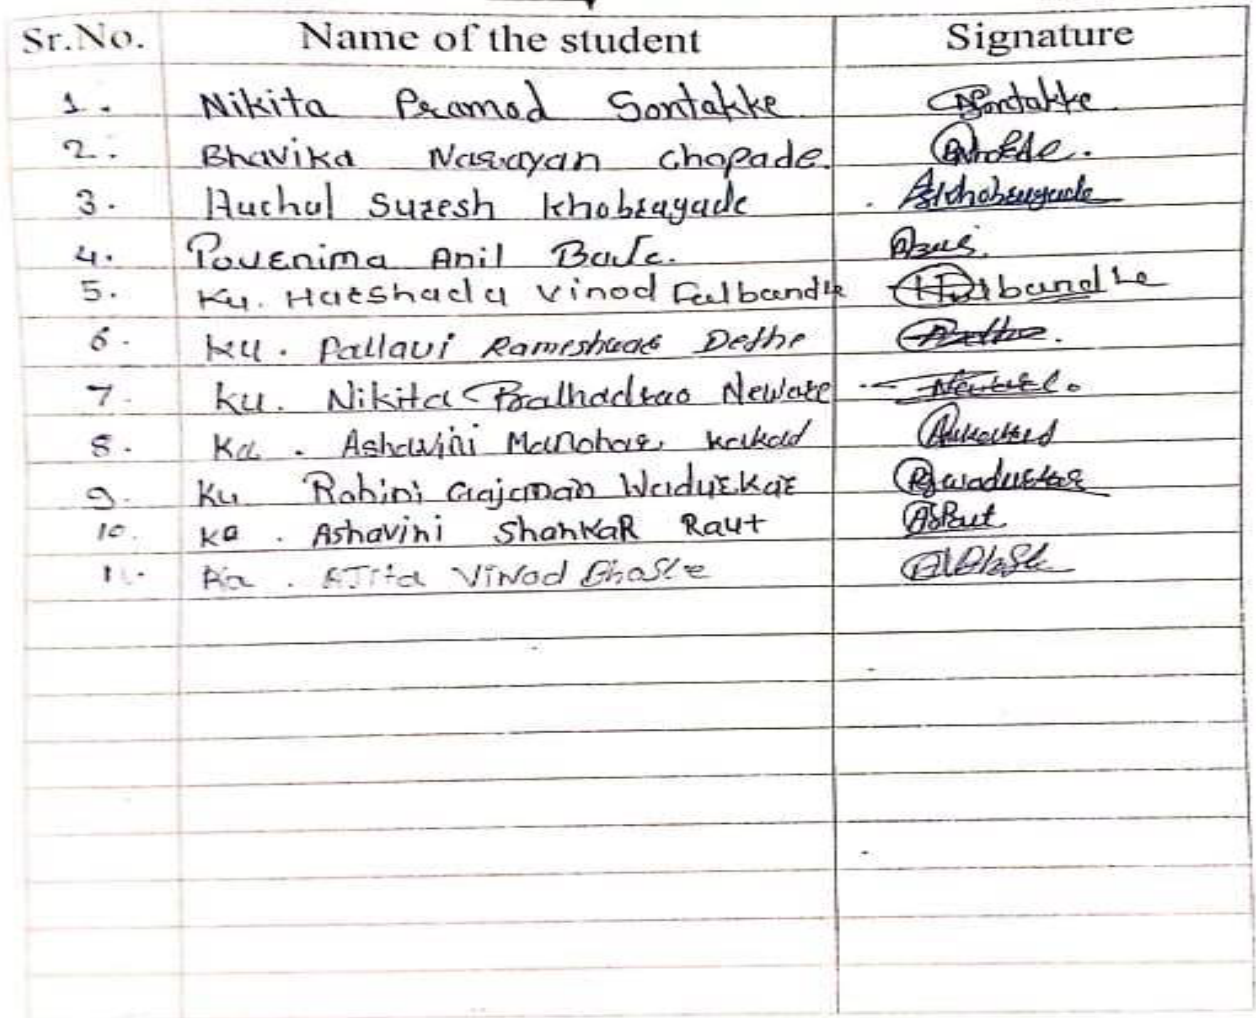 Sr.No. Name of the student Signature
1. Nikita Pramod Sontakke Sontakke
2. Bhavika Narayan Chopade.
3. Suresh Khobragade Khobragade
4. Anil
5. Ku. Harshada Vinod Falbandhe
6. Ku. Pallavi Rameshwar Dethe Dethe.
7. Ku. Nikita Pralhadrao Neware
8. Ku. Ashawini Manohar Kakad
9. Ku Rohini Gajanan Wadurkar RGWadurkar
10. Ku. Ashavini Shankar Raut ASRaut
11. Vinod